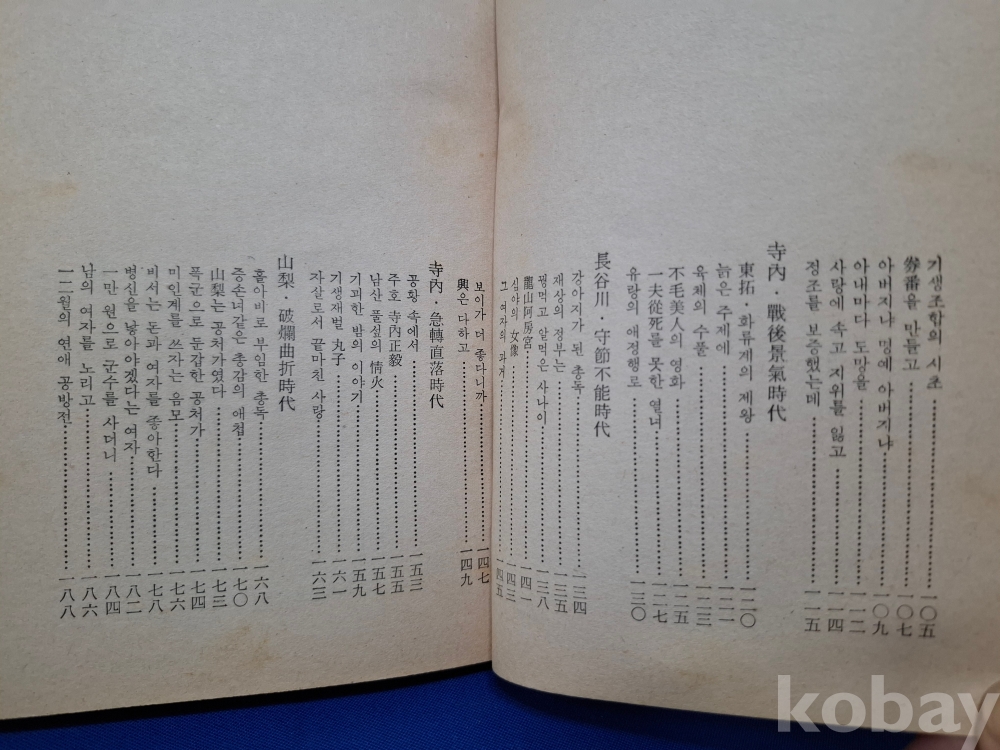 기생조합의 시조……一〇五
券番을 만들고……一〇七
아버지냐 멍에 아버지냐……一〇九
아내마다 도망을……一一二
사랑에 속고 지위를 잃고……一一四
정조를 보증했는데……一一五
寺內・戰後景氣時代
東拓・화류계의 제왕……一二〇
늙은 주제에……一二一
육체의 수풀……一二三
不毛美人의 영화……一二五
一夫從死을 못한 열녀……一二七
유랑의 애정행로……一三〇
長谷川・守節不能時代
강아지가 된 총독……一三四
재상의 정부는……一三五
꿩먹고 알먹은 사나이……一三八
龍山阿房宮……一四一
심야의 女像……一四三
그 여자의 과거……一四五
보이가 더 좋다니까……一四七
興은 다하고……一四九
寺內・急轉直落時代
공황 속에서……一五三
주호 寺內正毅……一五五
남산 풀섶의 情火……一五七
기괴한 밤의 이야기……一五九
기생재벌 丸子……一六一
자살로서 끝마친 사랑……一六三
山梨・破爛曲折時代
홀아비로 부임한 총독……一六八
증손녀같은 총감의 애첩……一七〇
山梨는 공처가였다……一七三
폭군으로 둔갑한 공처가……一七四
미인계를 쓰자는 음모……一七六
비서는 돈과 여자를 좋아한다……一七八
병신을 낳아야겠다는 여자……一八二
一만 원으로 군수를 사더니……一八四
남의 여자를 노리고……一八六
一二월의 연애 공방전……一八八
kobay